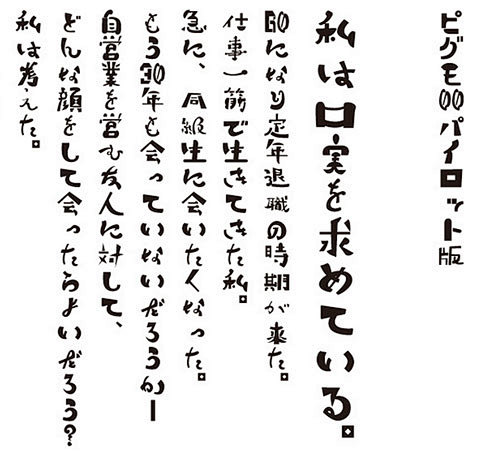 ピグモ00パイロット版
私は口実を求めている。
60になり定年退職の時期が来た。
仕事一筋で生きてきた私。
急に、同級生に会いたくなった。
もう30年も会っていないだろうかー
自営業を営む友人に対して、
どんな顔をして会ったらよいだろう?
私は考えた。